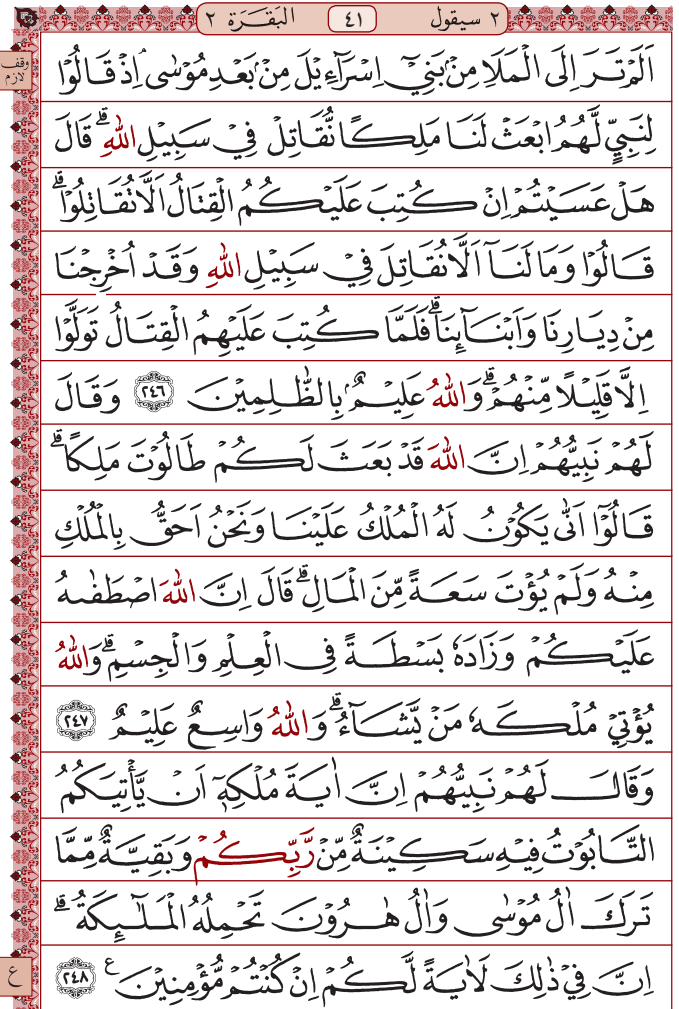 ٢ سيقول ٤١ البَقَرَة ٢
وقف لازم
اَلَمۡ تَرَ اِلَى الۡمَلَاِ مِنۡۢ بَنِىۡٓ اِسۡرَآءِيۡلَ مِنۡۢ بَعۡدِ مُوۡسٰى‌ۘ اِذۡ قَالُوۡا
لِنَبِىٍّ لَّهُمُ ابۡعَثۡ لَنَا مَلِکًا نُّقَاتِلۡ فِىۡ سَبِيۡلِ اللّٰهِ‌ؕ قَالَ
هَلۡ عَسَيۡتُمۡ اِنۡ کُتِبَ عَلَيۡکُمُ الۡقِتَالُ اَلَّا تُقَاتِلُوۡا ؕ
قَالُوۡا وَمَا لَنَآ اَلَّا نُقَاتِلَ فِىۡ سَبِيۡلِ اللّٰهِ وَقَدۡ اُخۡرِجۡنَا
مِنۡ دِيَارِنَا وَاَبۡنَآئِنَا ؕ فَلَمَّا کُتِبَ عَلَيۡهِمُ الۡقِتَالُ تَوَلَّوۡا
اِلَّا قَلِيۡلًا مِّنۡهُمۡ‌ؕ وَاللّٰهُ عَلِيۡمٌۢ بِالظّٰلِمِيۡنَ ﴿۲۴۶﴾ وَقَالَ
لَهُمۡ نَبِيُّهُمۡ اِنَّ اللّٰهَ قَدۡ بَعَثَ لَکُمۡ طَالُوۡتَ مَلِکًا ؕ
قَالُوۡٓا اَنّٰى يَکُوۡنُ لَهُ الۡمُلۡكُ عَلَيۡنَا وَنَحۡنُ اَحَقُّ بِالۡمُلۡكِ
مِنۡهُ وَلَمۡ يُؤۡتَ سَعَةً مِّنَ الۡمَالِ‌ؕ قَالَ اِنَّ اللّٰهَ اصۡطَفٰٮهُ
عَلَيۡکُمۡ وَزَادَهٗ بَسۡطَةً فِى الۡعِلۡمِ وَالۡجِسۡمِ‌ؕ وَاللّٰهُ
يُؤۡتِىۡ مُلۡکَهٗ مَنۡ يَّشَآءُ‌ؕ وَاللّٰهُ وَاسِعٌ عَلِيۡمٌ ﴿۲۴۷﴾
وَقَالَ لَهُمۡ نَبِيُّهُمۡ اِنَّ اٰيَةَ مُلۡکِهٖۤ اَنۡ يَّاۡتِيَکُمُ
التَّابُوۡتُ فِيۡهِ سَکِيۡنَةٌ مِّنۡ رَّبِّکُمۡ وَبَقِيَّةٌ مِّمَّا
تَرَكَ اٰلُ مُوۡسٰى وَاٰلُ هٰرُوۡنَ تَحۡمِلُهُ الۡمَلٰٓئِکَةُ‌ ؕ
اِنَّ فِىۡ ذٰلِكَ لَاٰيَةً لَّکُمۡ اِنۡ کُنۡتُمۡ مُّؤۡمِنِيۡنَ ﴿۲۴۸﴾ ع
ع